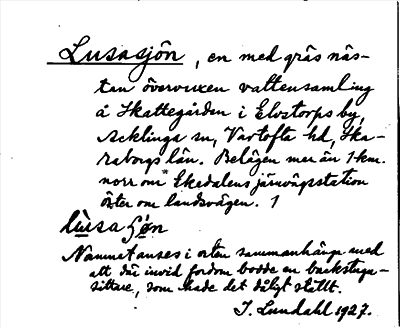 Lusasjön, en med gräs näs-
tan övervuxen vattensamling
å Skattegården i Elvstorps by,
Acklinga sn, Vartofta hd, Ska-
raborgs län. Belägen mer än 1 km.
norr om Ekedalens järnvägsstation
öster om landsvägen. 1
lùsa ʃön
Namnet anses i orten sammanhänga med
att där invid fordom bodde en backstugu-
sittare, som hade det dåligt ställt.
I. Lundahl 1927.